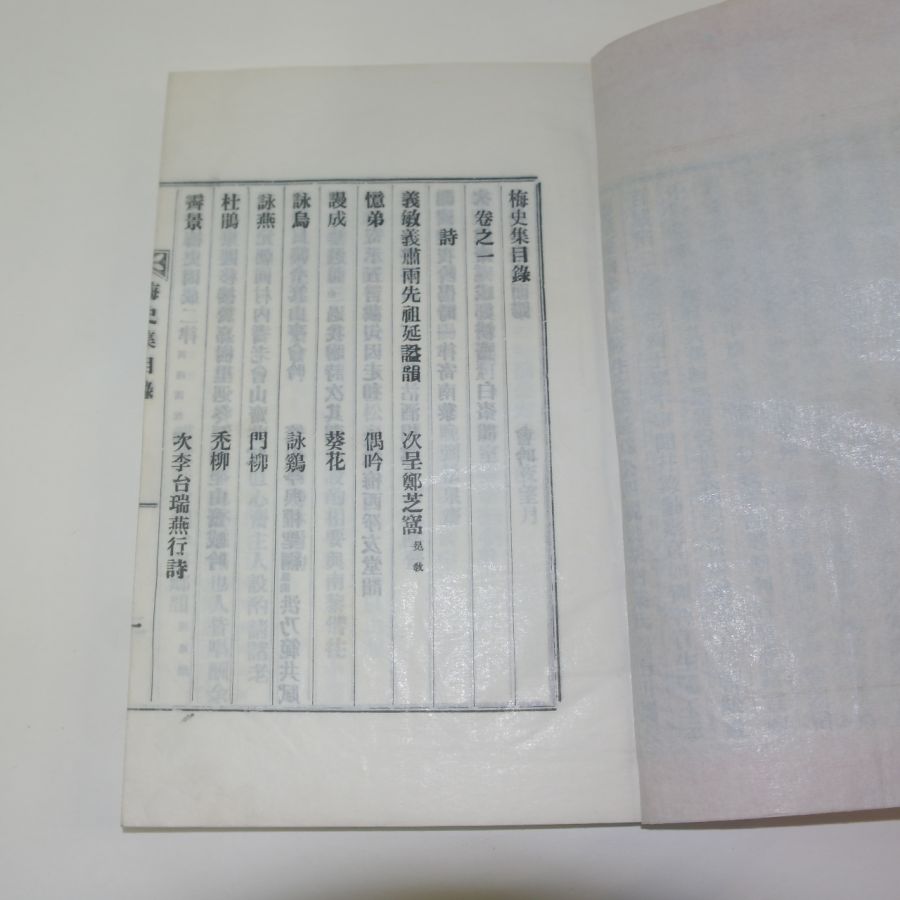 梅史集目錄
卷之一
詩
義敏義肅兩先祖延諡韻 次呈鄭芝窩 晃敎
憶弟 偶吟
謾成 葵花
詠烏 詠鷄
詠燕 門柳
杜鵑 禿柳
霽景 次李台瑞燕行詩
梅史集目錄 一